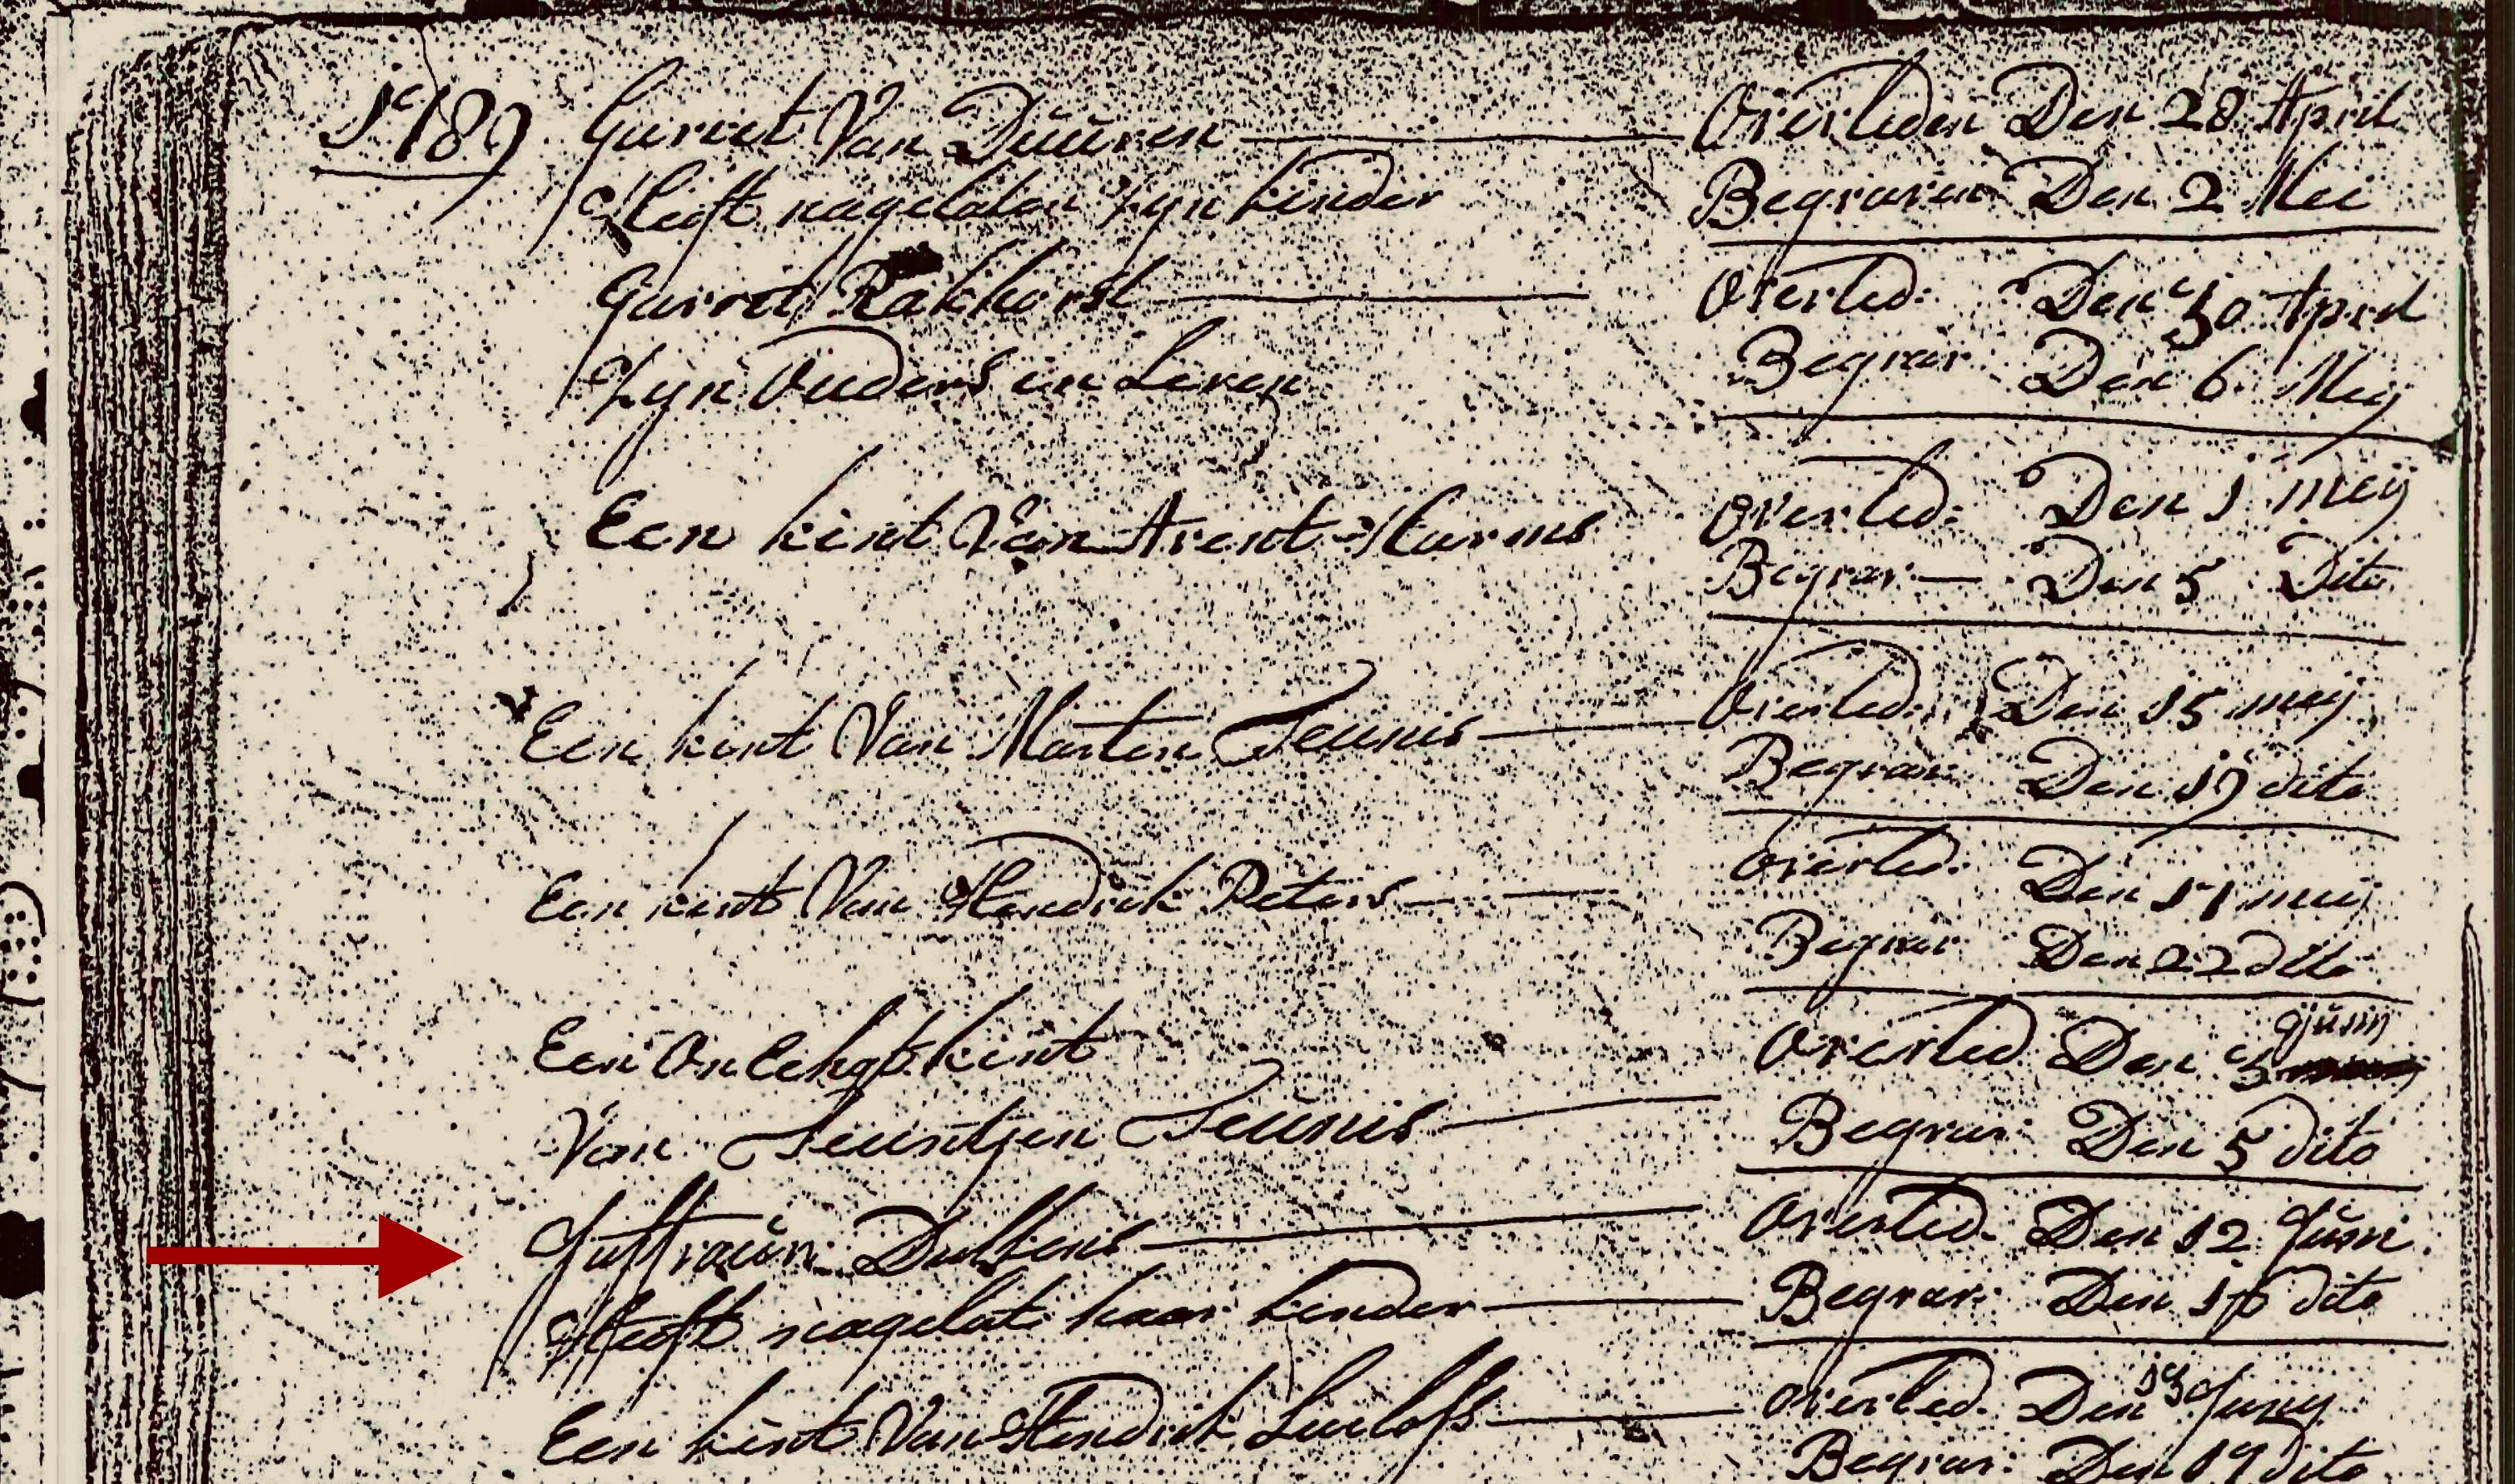 1789 Garret Van Duuren Overleden Den 28 April
Heeft nagelaten Zyn kinder Begraven Den 2 Mei
Garret Rakhorst Overled: Den 30 April
Zyn Ouders in Leven Begrav: Den 6 Mey
Een kint Van Arent Harms Overled: Den 1 mey
Begrav: Den 5 Dito
Een kint Van Marten Teunis Overled: Den 15 mey
Begrav: Den 19 dito
Een kint Van Hendrik Peters Overled: Den 17 mey
Begrav: Den 22 dito
Een On Echgt kint Overled Den 3 Juny
Van Teuntjen Teunis Begrav: Den 5 dito
Juffraún Overled: Den 12 Juni
Heeft nagelat: haar kinder Begrav: Den 16 dito
Een kint Van Hendrik Luelofs Overled: Den 13 Juny
Begrav: Den 19 dito